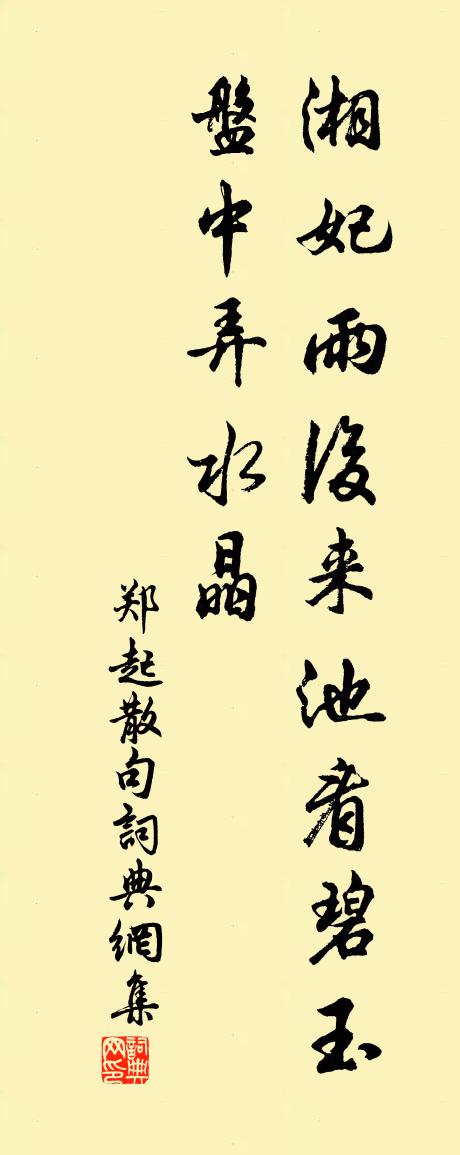 湘妃雨後来池看碧玉
盤中弄水晶
郑起散句詞典網集
詞典网印